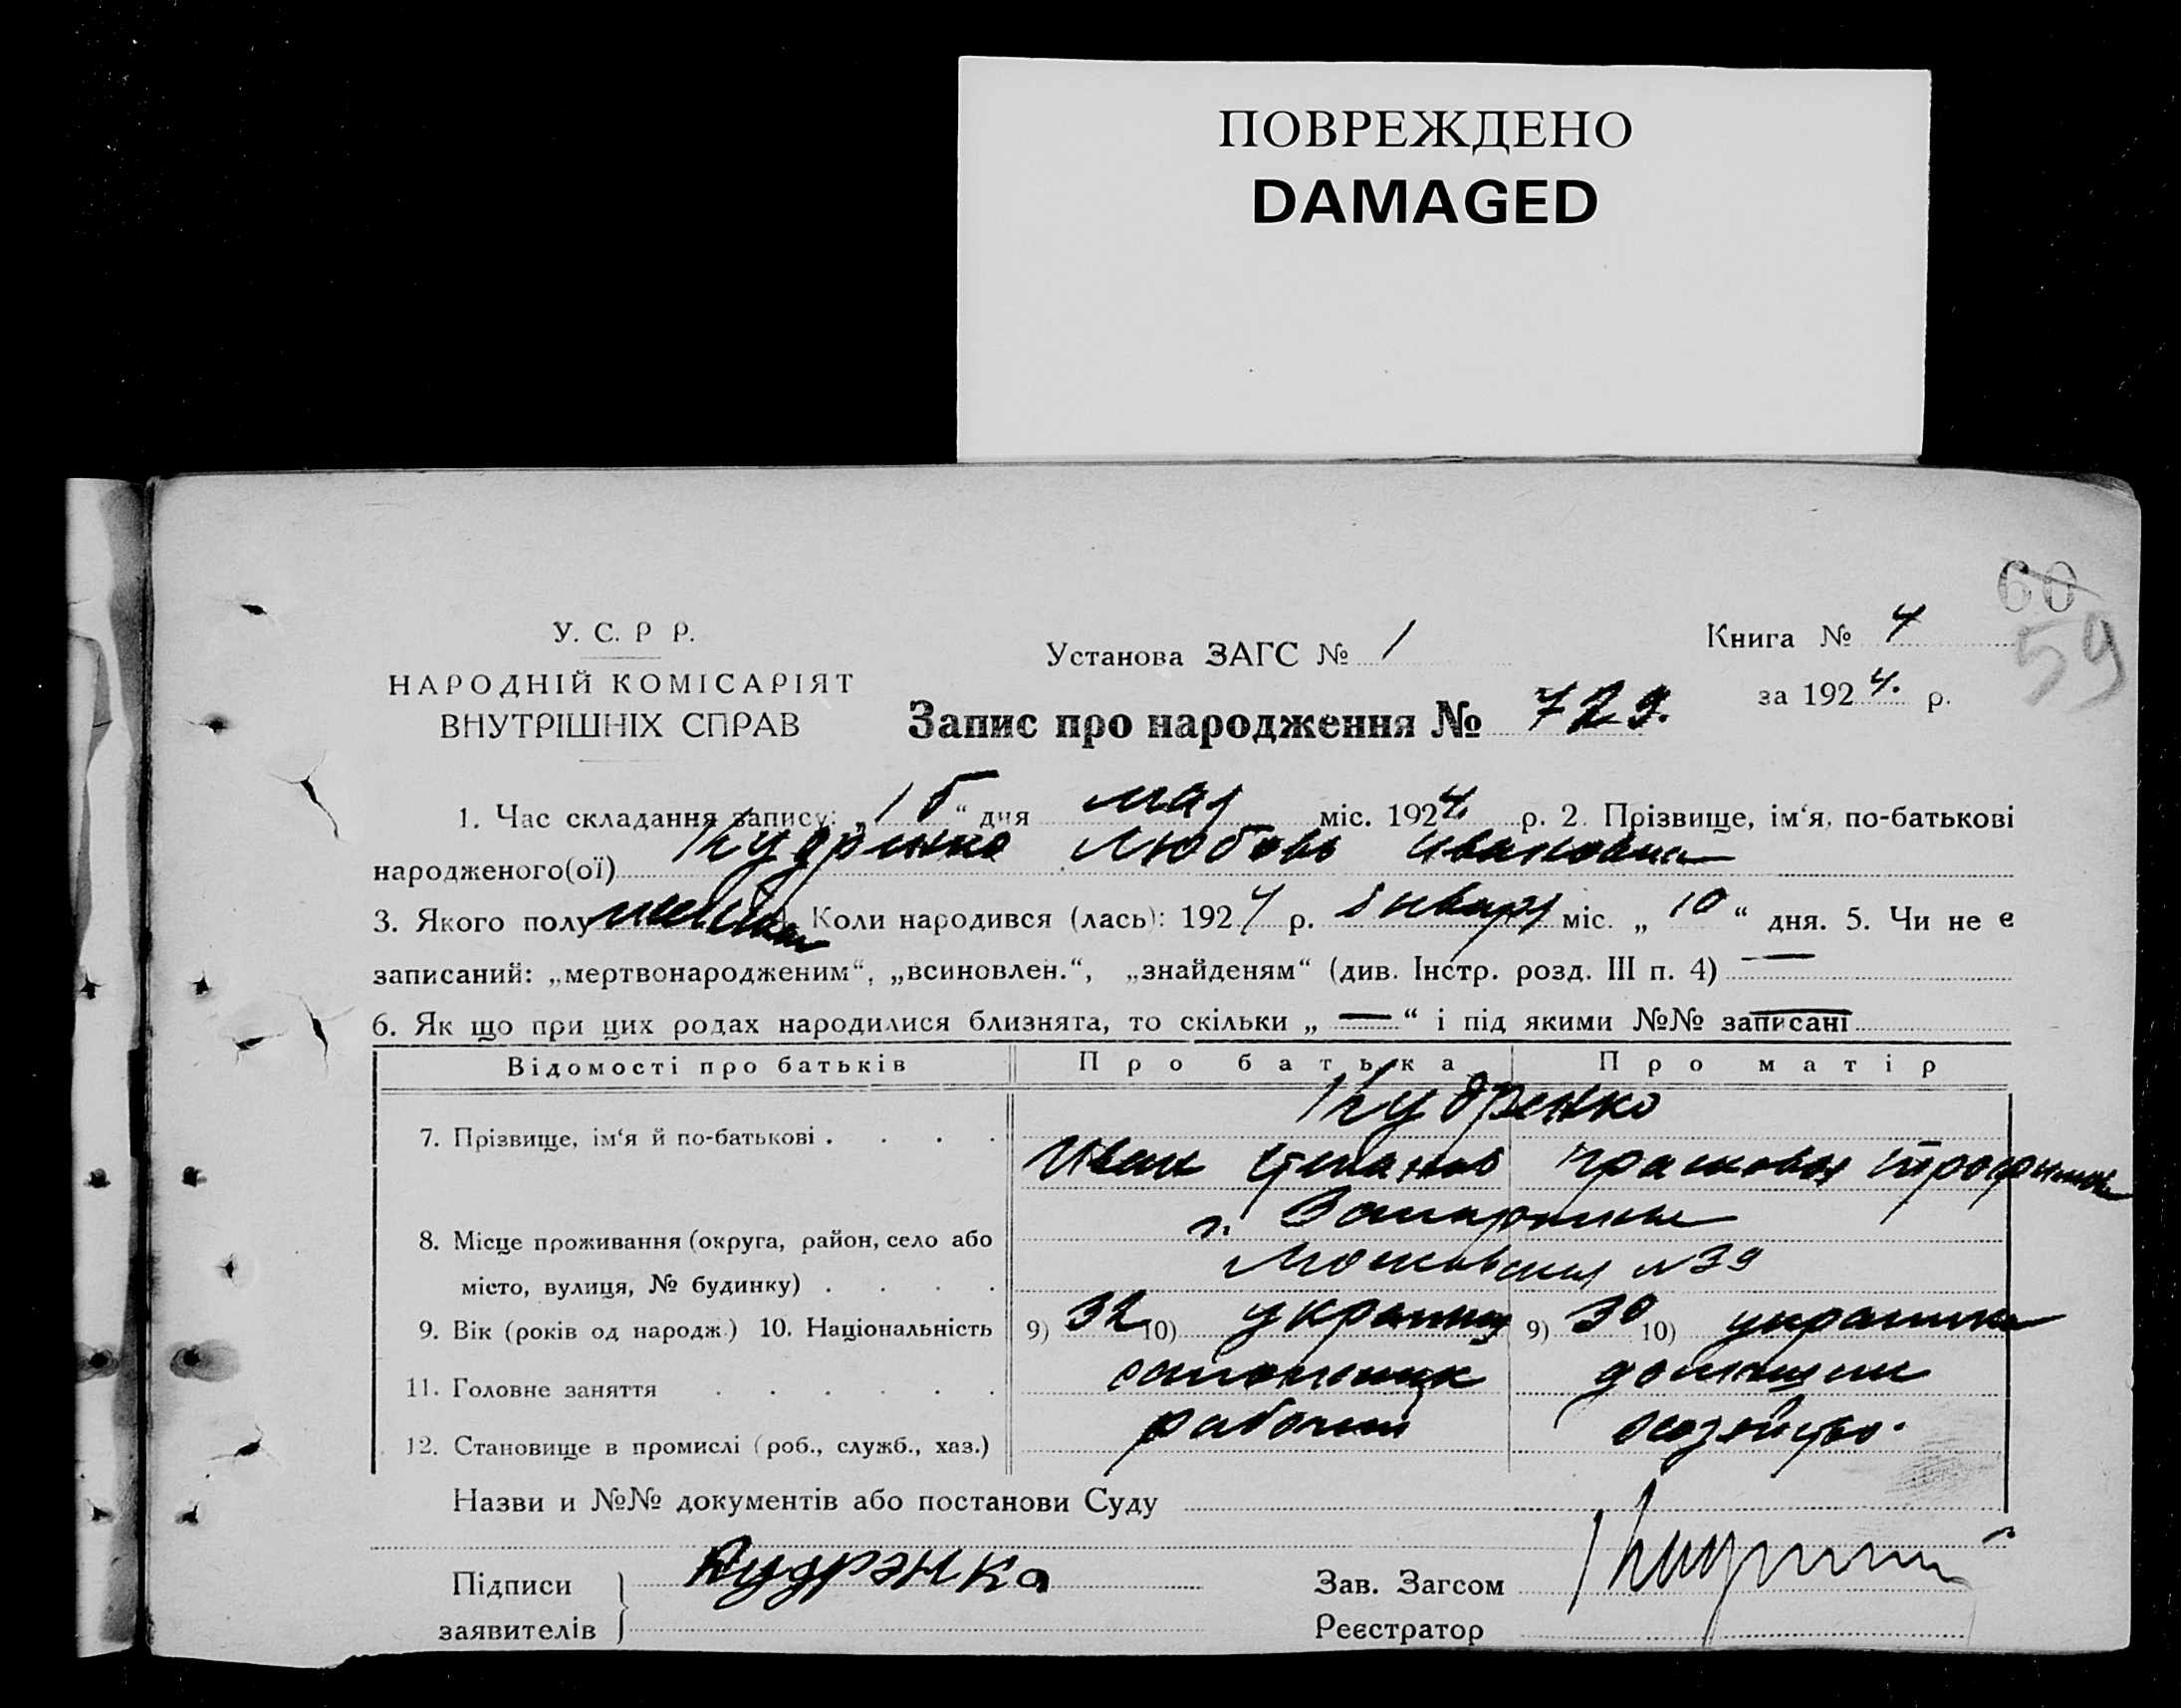 ПОВРЕЖДЕНО
DAMAGED
60
59
У. С. Р Р.
НАРОДНІЙ КОМІСАРІЯТ
ВНУТРІШНІХ СПРАВ
Установа ЗАГС № 1
Книга № 4
за 1924. р.
Запис про народження № 729.
1. Час складання запису: „15“ дня мая міс. 1924. р. 2. Прізвище, ім‘я, по-батькові
народженого(ої) Кудренко Любовь Ивановна
3. Якого полу Коли народився (лась): 1924 р. января міс. „10“ дня. 5. Чи не є
записаний: „мертвонародженим“, „всиновлен.“, „знайденям“ (див. Інстр. розд. III п. 4) —
6. Як що при цих родах народилися близнята, то скільки „—“ і під якими №№ записані —
Відомості про батьків Про батька Про матір
Кудренко
7. Прізвище, ім‘я й по-батькові . . . .
Иван Степанов Прасковья Трофимов
г. Запорожье
8. Місце проживання (округа, район, село або
Московская №39
місто, вулиця, № будинку) . . . .
9. Вік (років од народж.) 10. Національність 9) 32 10) украинец 9) 30 10) украинка
11. Головне заняття . . . . . . сапожник домашнее
12. Становище в промислі (роб., служб., хаз.) рабочий хозяйство.
Назви и №№ документів або постанови Суду
Підписи
заявителів
Кудрэнка
Зав. Загсом
Реєстратор